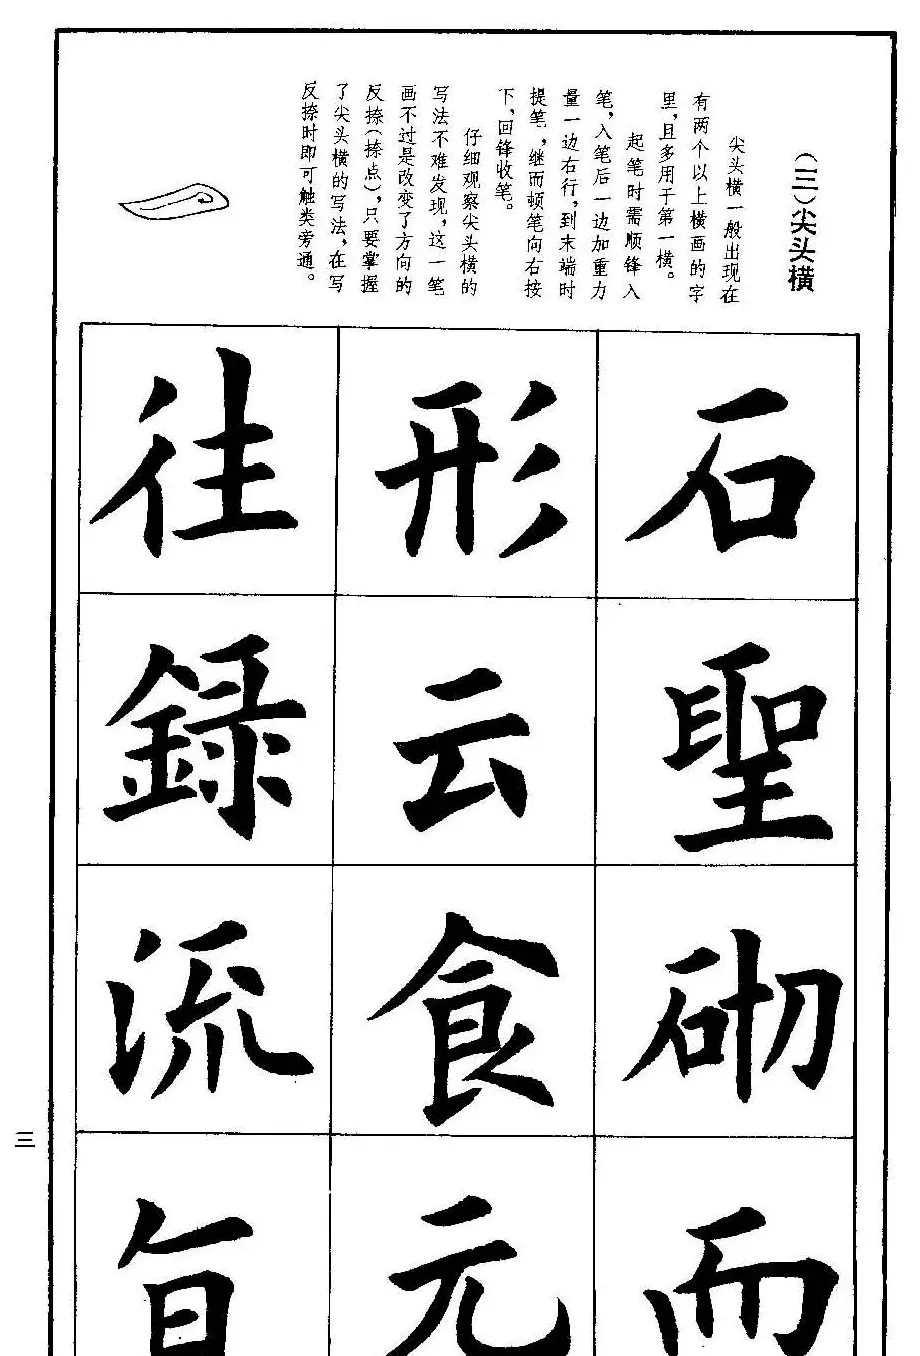 (三)尖头横
尖头横一般出现在
有两个以上横画的字
里，且多用于第一横。
起笔时需顺锋入
笔，入笔后一边加重力
量一边右行，到末端时
提笔，继而顿笔向右按
下，回锋收笔。
仔细观察尖头横的
写法不难发现，这一笔
画不过是改变了方向的
反捺(捺点)，只要掌握
了尖头横的写法，在写
反捺时即可触类旁通。
石聖砌而
形云食元
往録流
三